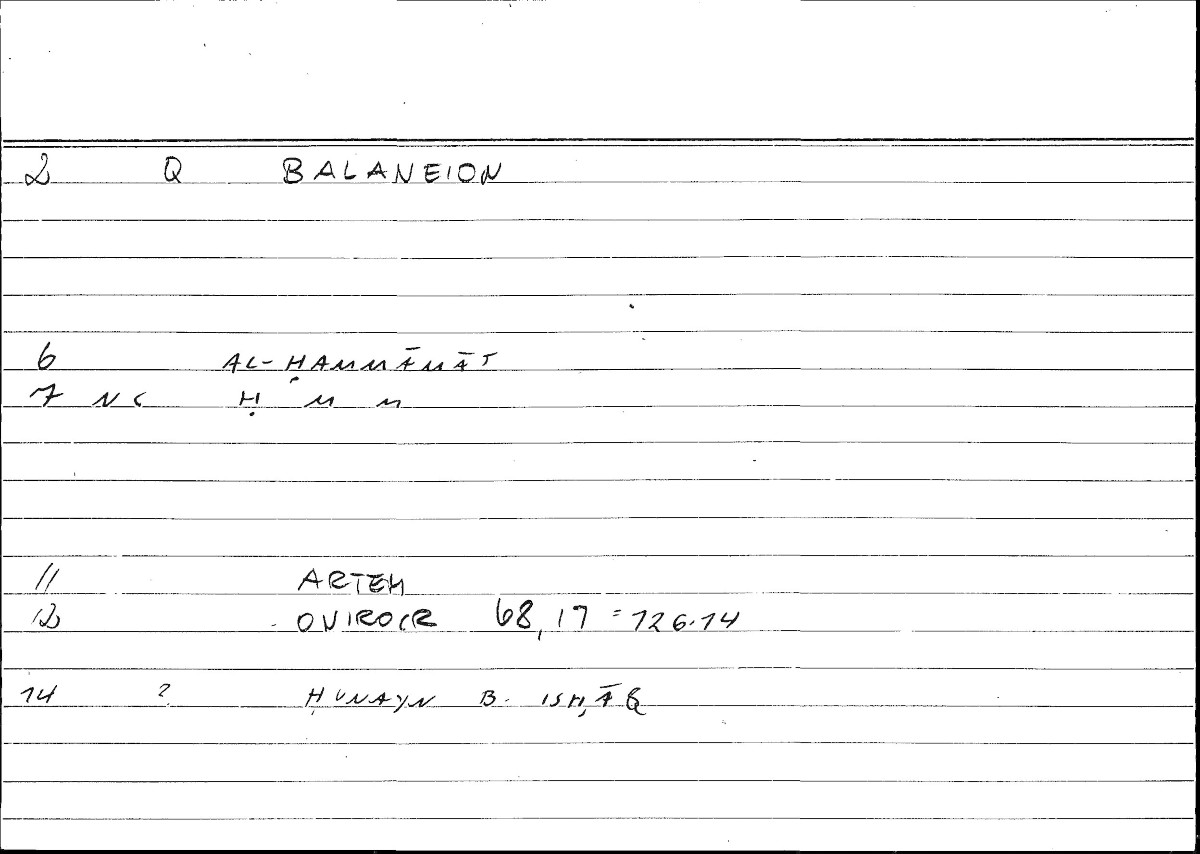 2 Q BALANEION
6 AL-ḤAMMĀMĀT
7 NC Ḥ M M
11 ARTEM
12 ONIROCR 68,17 = 126.14
14 ? ḤUNAYN B. ISḤĀQ